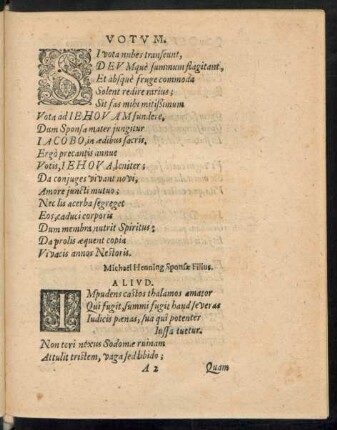 VOTVM.
SI vota nubes transeunt,
DEVMquè summum flagitant,
Et absquè fruge commoda
Solent redire rarius;
Sit fas mihi mitissimum
Vota ad IEHOVAM fundere,
Dum Sponsa mater jungitur
IACOBO, in ædibus sacris,
Ergò precantis annue
Votis, IEHOVA, leniter;
Da conjuges vivant novi,
Amore juncti mutuo;
Nec lis acerba segreget
Eos, caduci corporis
Dum membra, nutrit Spiritus;
Da prolis æquent copia
Vivacis annos Nestoris.
Michael Henning Sponsæ Filius.
ALIVD.
IMpudens castos thalamos amator
Qui fugit, summi fugit haud severas
Iudicis pœnas, sua qui potenter
Iussa tuetur.
Non tori nexus Sodomæ ruinam
Attulit tristem, vaga sed libido;
A 2 Quam